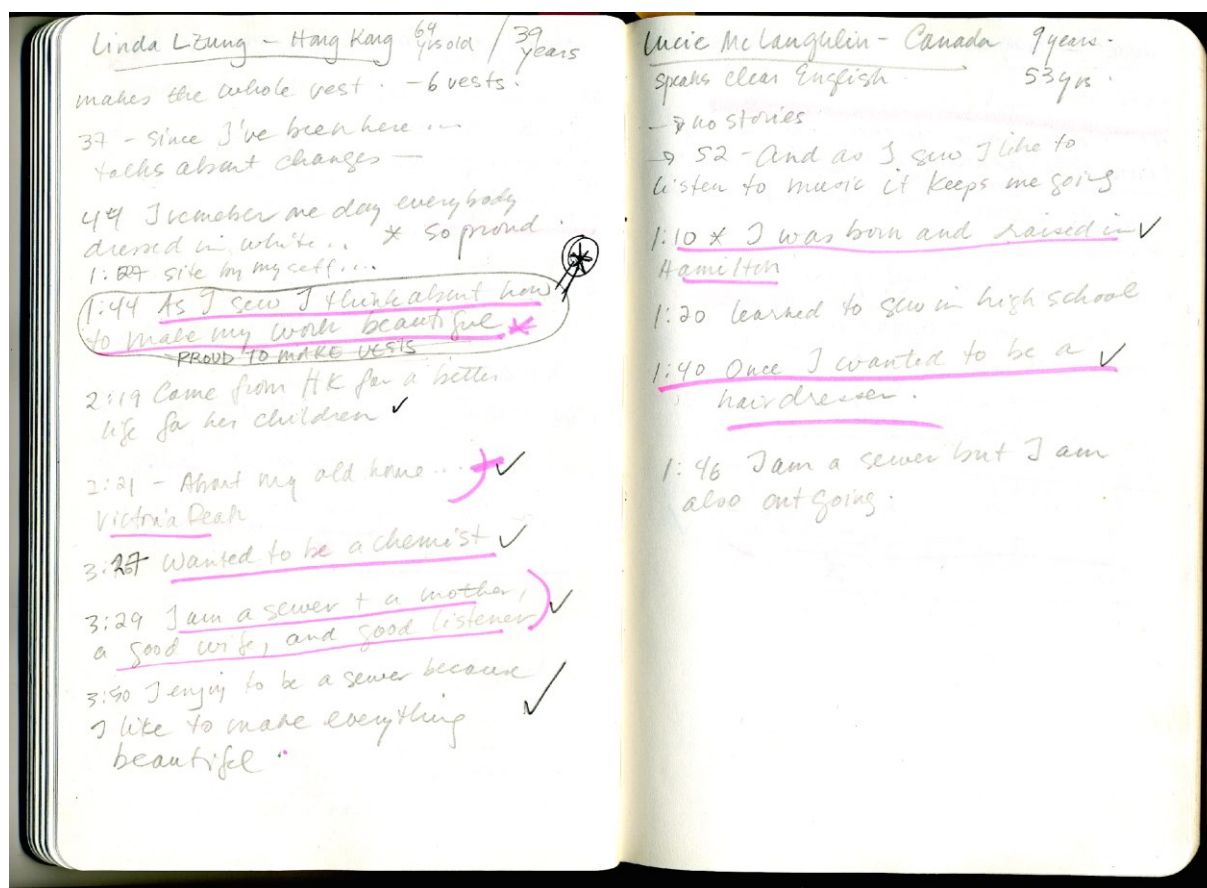 Linda Lzung - Hong Kong 64 yrs old / 39 years
makes the whole vest. - 6 vests.
37 - since I've been here ...
talks about changes -
44 I remember one day everybody
dressed in white .. * so proud.
1:27 site by myself....
1:44 As I sew I think about how
to make my work beautiful *
PROUD TO MAKE VESTS
2:19 Came from HK for a better
life for her children ✓
2:21 - About my old home .... ✓
Victoria Peak
3:27 Wanted to be a chemist ✓
3:29 I am a sewer + a mother,
a good wife, and good listener ✓
3:50 I enjoy to be a sewer because
I like to make everything ✓
beautiful.
Lucie McLaughlin - Canada 9 years -
speaks clear English. 53 yrs.
→ no stories
→ 52 - And as I sew I like to
listen to music it keeps me going
1:10 * I was born and raised in ✓
Hamilton
1:20 learned to sew in high school
1:40 Once I wanted to be a ✓
hairdresser.
1:46 I am a sewer but I am
also outgoing.